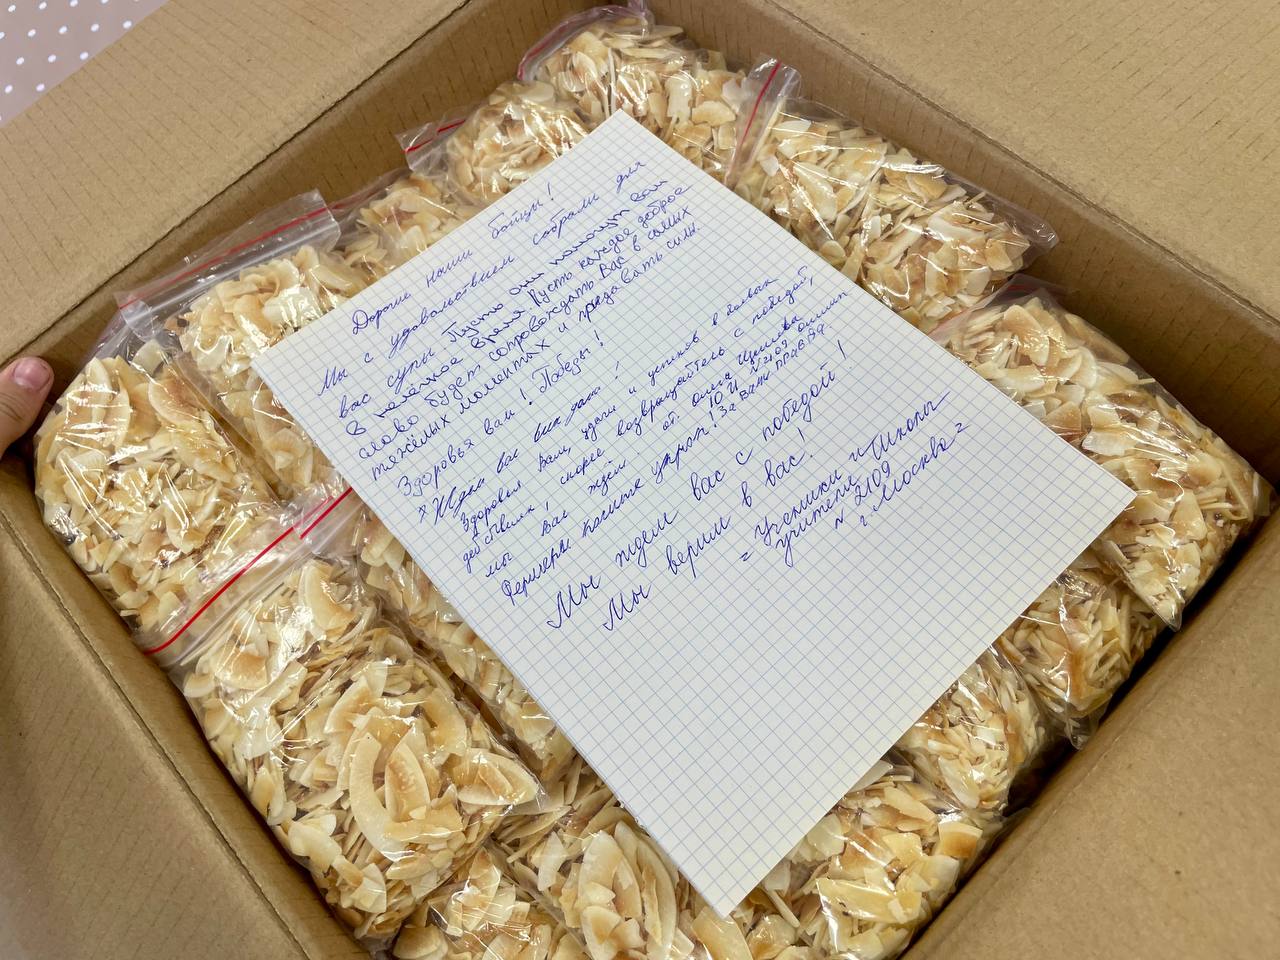 Дорогие наши бойцы!
Мы с удовольствием собрали для
вас супы. Пусть они помогут вам
в нелёгкое время. Пусть каждое доброе
слово будет сопровождать Вас в самых
тяжёлых моментах и придавать силы.
Здоровья вам! Победы!
Ждём вас
Здоровья Вам, удачи и успехов в боевых
действиях! скорее возвращайтесь с победой,
мы вас ждём! от
10 И №2109
За вами правда.
Мы ждём вас с победой!
Мы верим в вас!
= Ученики и
учителя Школы
№ 2109
г. Москва =